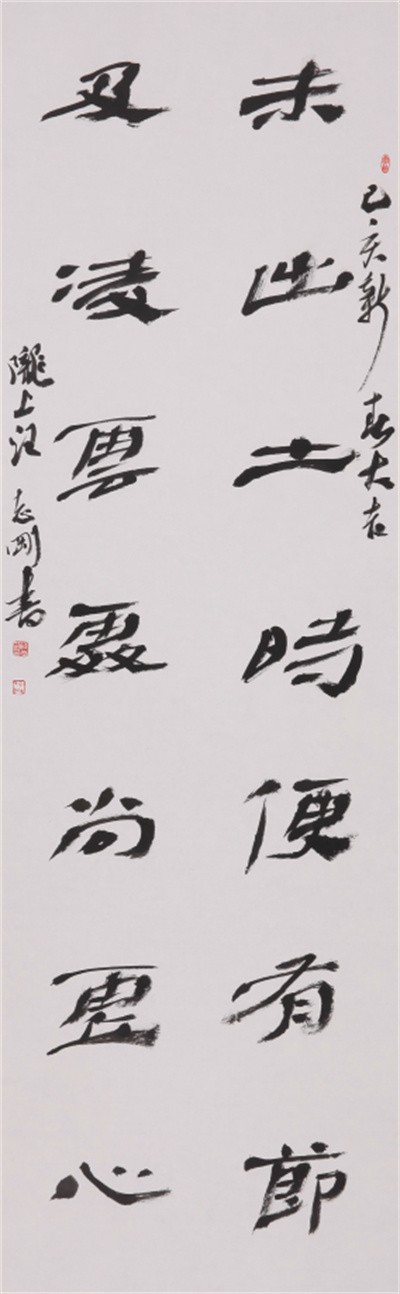 己亥新春大吉
未出土時便有節
及凌雲處尚虛心
隴上汪志剛書